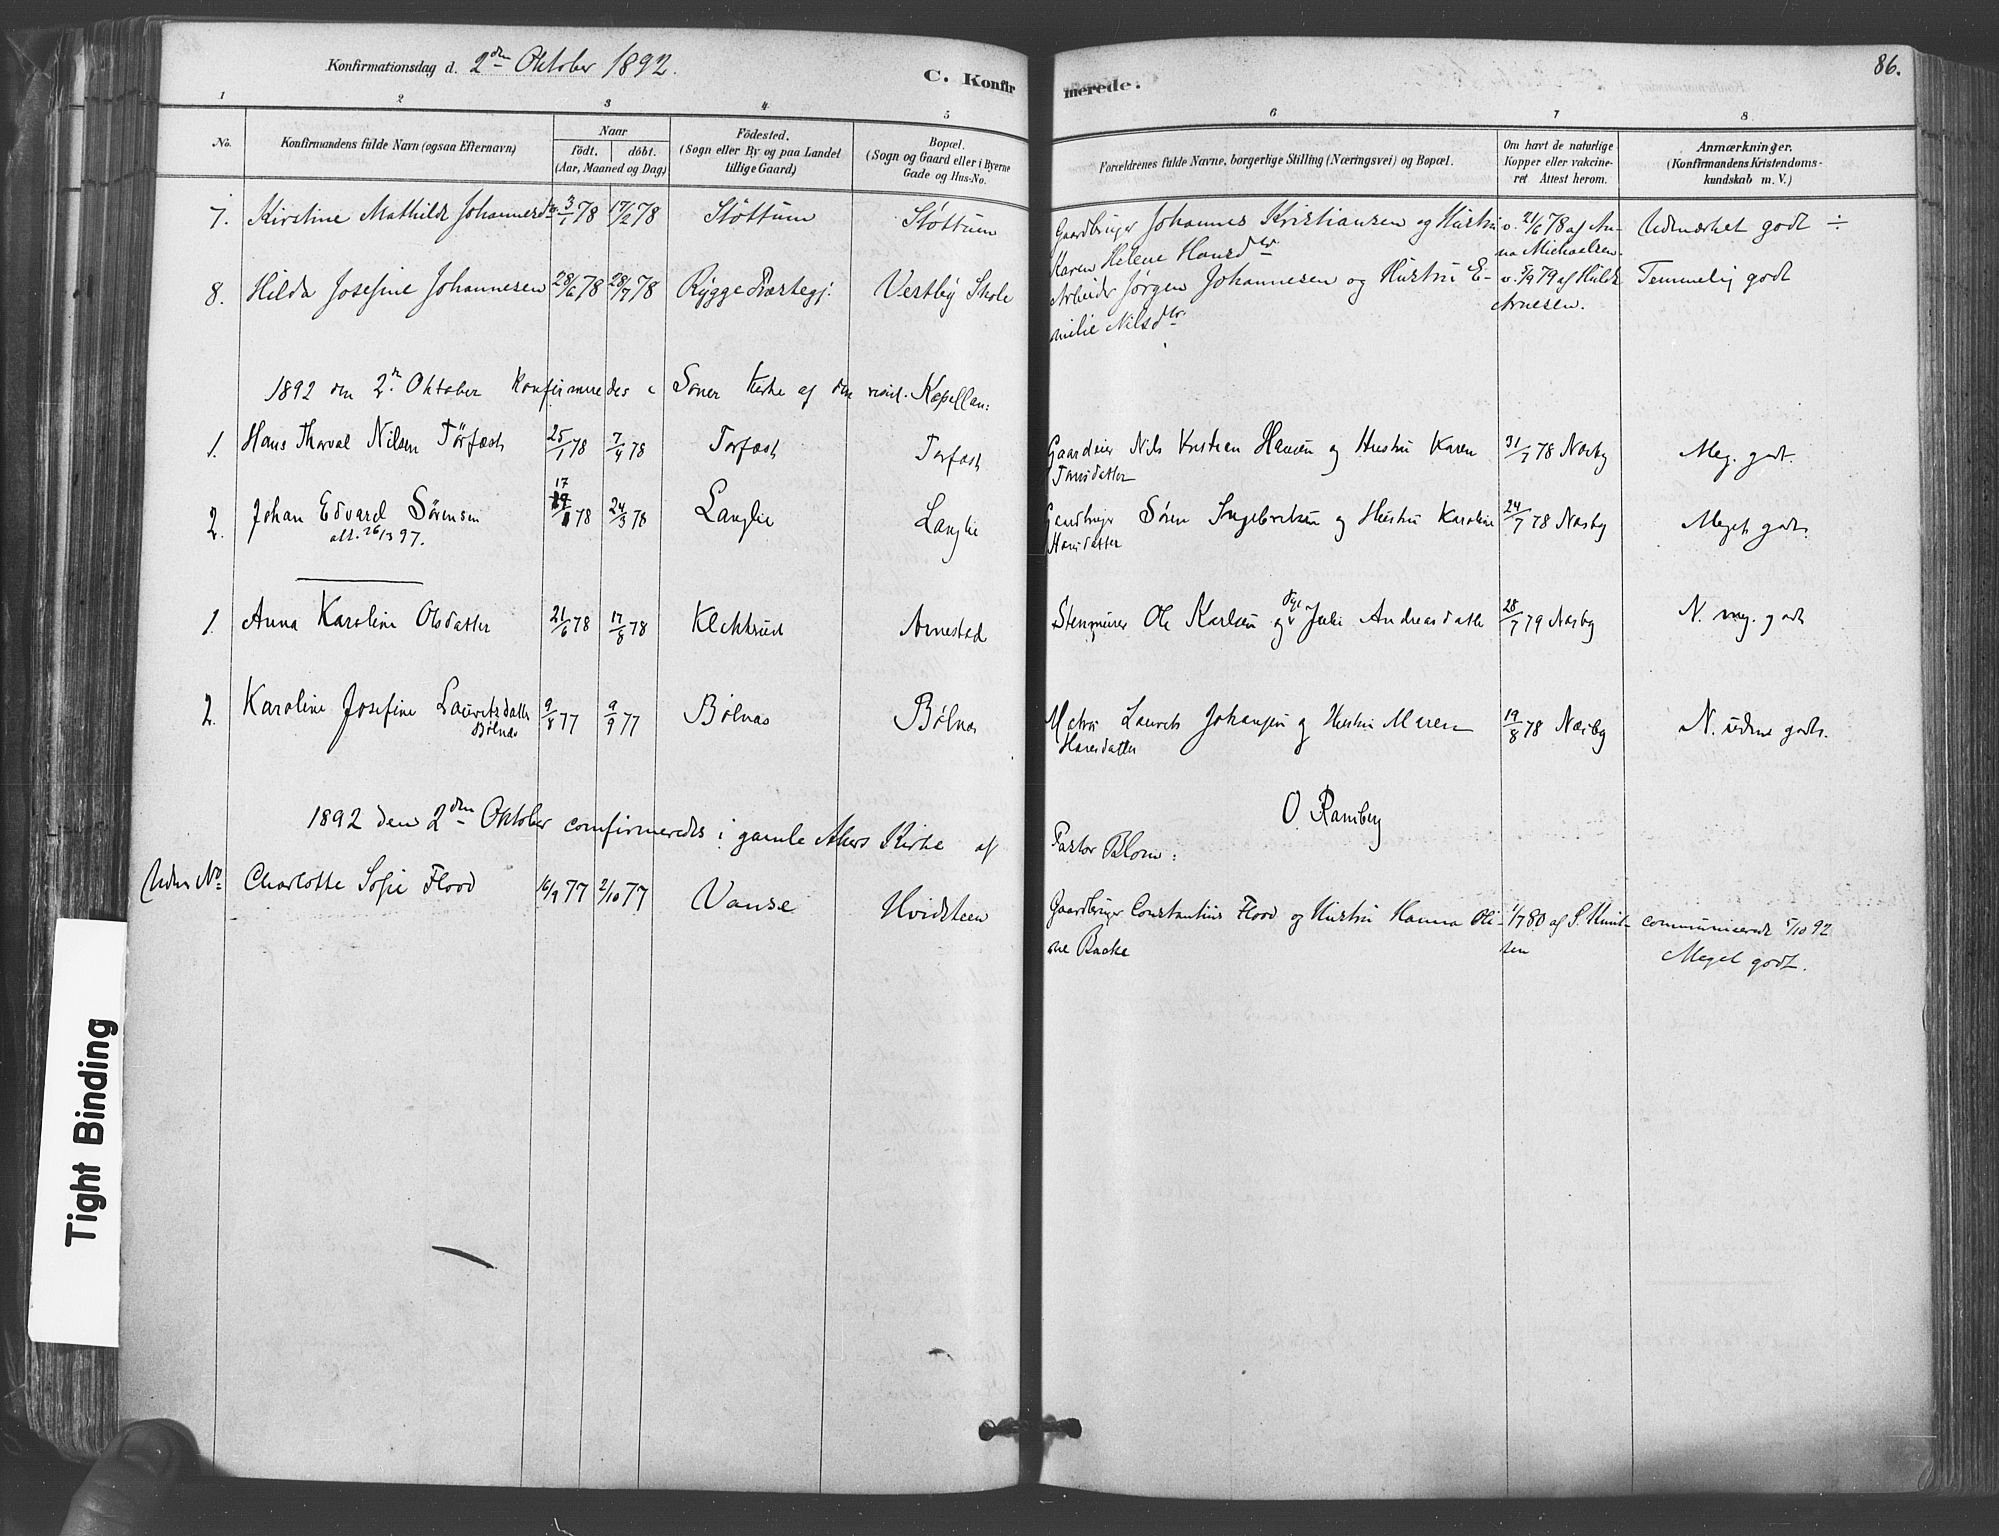 86.
Konfirmationsdag d. 2den Oktober 1892.
C. Konfirmerede.
1 2 3 4 5 6 7 8
No.
Konfirmandens fulde Navn (ogsaa Efternavn)
Naar
födt. döbt.
(Aar, Maaned og Dag)
Födested.
(Sogn eller By og paa Landet
tillige Gaard)
Bopæl.
(Sogn og Gaard eller i Byerne
Gade og Hus-No.
Forældrenes fulde Navne, borgerlige Stilling (Næringsvei) og Bopæl.
Om havt de naturlige
Kopper eller vakcine-
ret Attest herom.
Anmærkninger.
(Konfirmandens Kristendoms-
kundskab m. V.)
7. Kirstine Mathilde Johannesdr. 3/1 78 17/2 78 Støttum Støttum Gaardbruger Johannes Kristiansen og Hustru v. 21/6 78 af An- Udmærket godt ÷
Karen Helene Hansdtr na Michaelsen
8. Hilda Josefine Johannesen 28/6 78 28/7 78 Rygge Præstegj. Vestby Skole Arbeider Jørgen Johannesen og Hustru E- v. 5/9 79 af Hulda Temmelig godt
milie Nilsdtr. Arnesen.
1892 den 2n Oktober konfirmeredes i Soner Kirke af den resid. Kapellan:
1. Hans Thorval Nilsen Tørfæst 25/1 78 7/4 78 Torfæst Torfæst Gaardeier Nils Kristian Hansen og Hustru Karen 31/7 78 Næsby Meg. godt.
2. Johan Edvard Sørensen 17/1 78 24/3 78 Langlie Langlie Gaardbruger Søren Ingebretsen og Hustru Karoline 24/7 78 Næsby Meget godt.
att. 26/3 97. Hansdatter
1. Anna Karoline Olsdatter 21/6 78 17/8 78 Klekkrud Arnestad Stenminer Ole Karlsen og Pge Julie Andreasdatter 28/7 79 Næsby N. meg. godt
2. Karoline Josefine Lauritzdatter 9/8 77 9/9 77 Bølnæs Bølnæs Matros Laurits Johansen og Hustru Maren 19/8 78 Næsby N. udm. godt.
Bølnæs Hansdatter
O. Ramberg
1892 den 2den Oktober confirmeredes i gamle Akers Kirke af Pastor Blom:
Uden No. Charlotte Sofie Flood 16/9 77 2/10 77 Vanse Hvidsteen Gaardbruger Constantius Flood og Hustru Hanna Oli- 1/7 80 af S. Knut- communicerede 5/10 92
ne Backe sen Meget godt.
Tight Binding